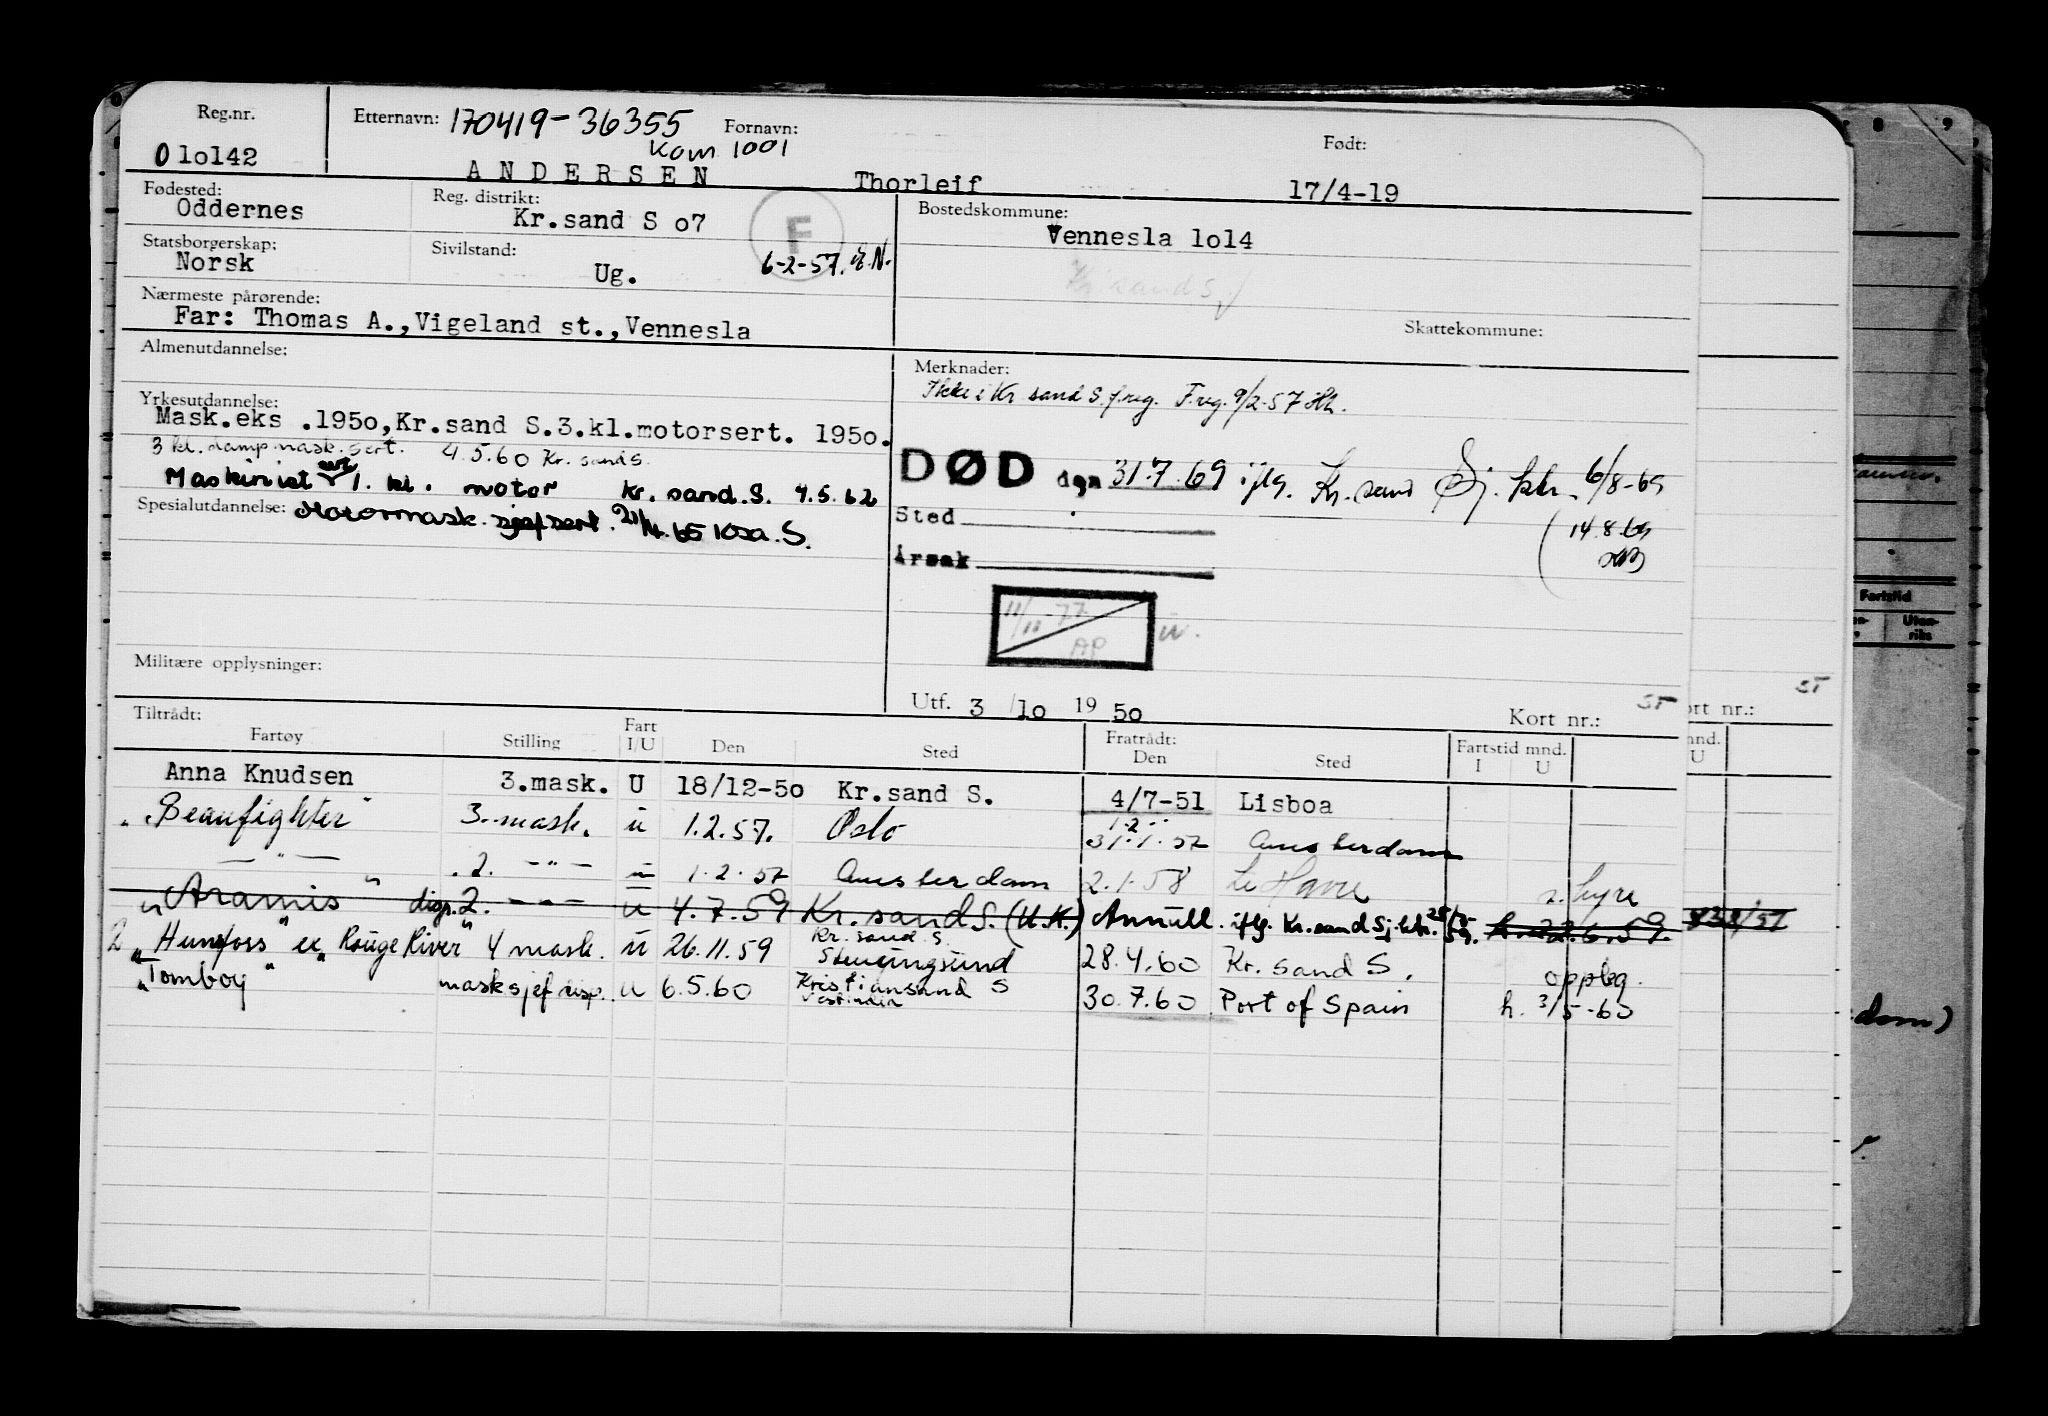 Reg.nr. Etternavn: 170419-36355 Fornavn: Født:
Kom 1001
0 1o142 ANDERSEN Thorleif 17/4-19
Fødested: Reg. distrikt: Bostedskommune:
Oddernes Kr.sand S o7 F Vennesla 1o14
Statsborgerskap: Sivilstand:
Norsk Ug. 6-2-57.
Kr. sand S
Nærmeste pårørende:
Far: Thomas A.,Vigeland st.,Vennesla Skattekommune:
Almenutdannelse: Merknader:
Ikke i Kr sand S. f.reg. F.reg. 9/2-57
Yrkesutdannelse:
Mask.eks .195o,Kr.sand S.3.kl.motorsert. 195o.
3 kl. damp mask. sert. 4.5.60 Kr. sand S.
Maskinist 1. kl. motor kr. sand. S. 4.5.62
DØD den 31.7.69 iflg. Kr. sand Sj. ktr. 6/8-69
Spesialutdannelse: Motormask. sjef sert. S.
Sted 14.8.69
Årsak
11/11-77
AP
Militære opplysninger:
Utf. 3 /1o 19 5o ST
Kort nr.:
ST
ort nr.:
Tiltrådt: Fratrådt:
Fartøy Stilling Fart I/U Den Sted Den Sted Fartstid mnd. I U
Anna Knudsen 3.mask. U 18/12-5o Kr.sand S. 4/7-51 Lisboa
"Beaufighter" 3. mask. u 1.2.57. Oslo 31.1.57 Amsterdam
— " — 2. — " — u 1.2.57 Amsterdam 2.1.58 Le Havre s. hyre
"Aramis" disp. 2. — " — u 4.7.59 Kr. sand S. (U.K.) Annull. iflg. Kr. sand Sj. ktr. h. 22.6.59.
2 "Hunsfoss" ex "Rouge River" 4 mask. u 26.11.59 Kr. sand S. Stenungsund 28.4.60 Kr. sand S. oppbg.
"Tomboy" masksjef u 6.5.60 Kristiansand S Vestindia 30.7.60 Port of Spain h. 3/5-60
Fartstid
Uten-
riks
dam)